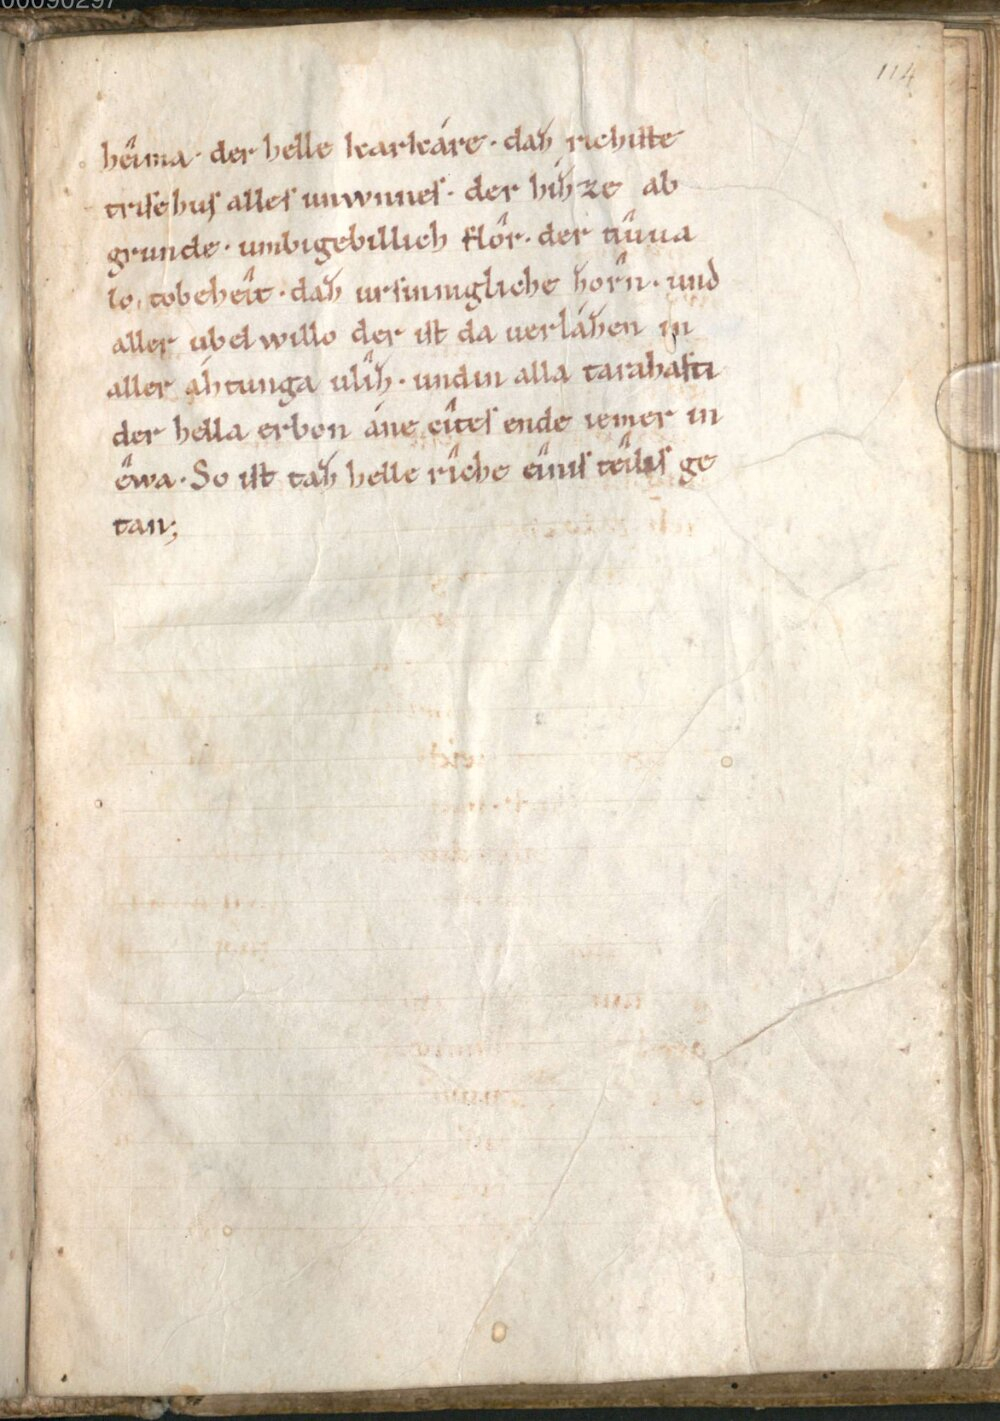 00090297
114
heîma · der helle karkáre · daz richiſte
triſehuſ alleſ unwnneſ · der hizze ab
grunde · umbigebillich flôr · der tîuua
lo, tobeheît · daz urſinnigliche zôrn · und
aller ubel willo der iſt da uerlázen in
aller áhtunga ulîz · undin alla tarahafti
der hella erbon áne cîteſ ende iemer in
êwa · So iſt taz helle rîche eîniſ teîliſ ge
tan;